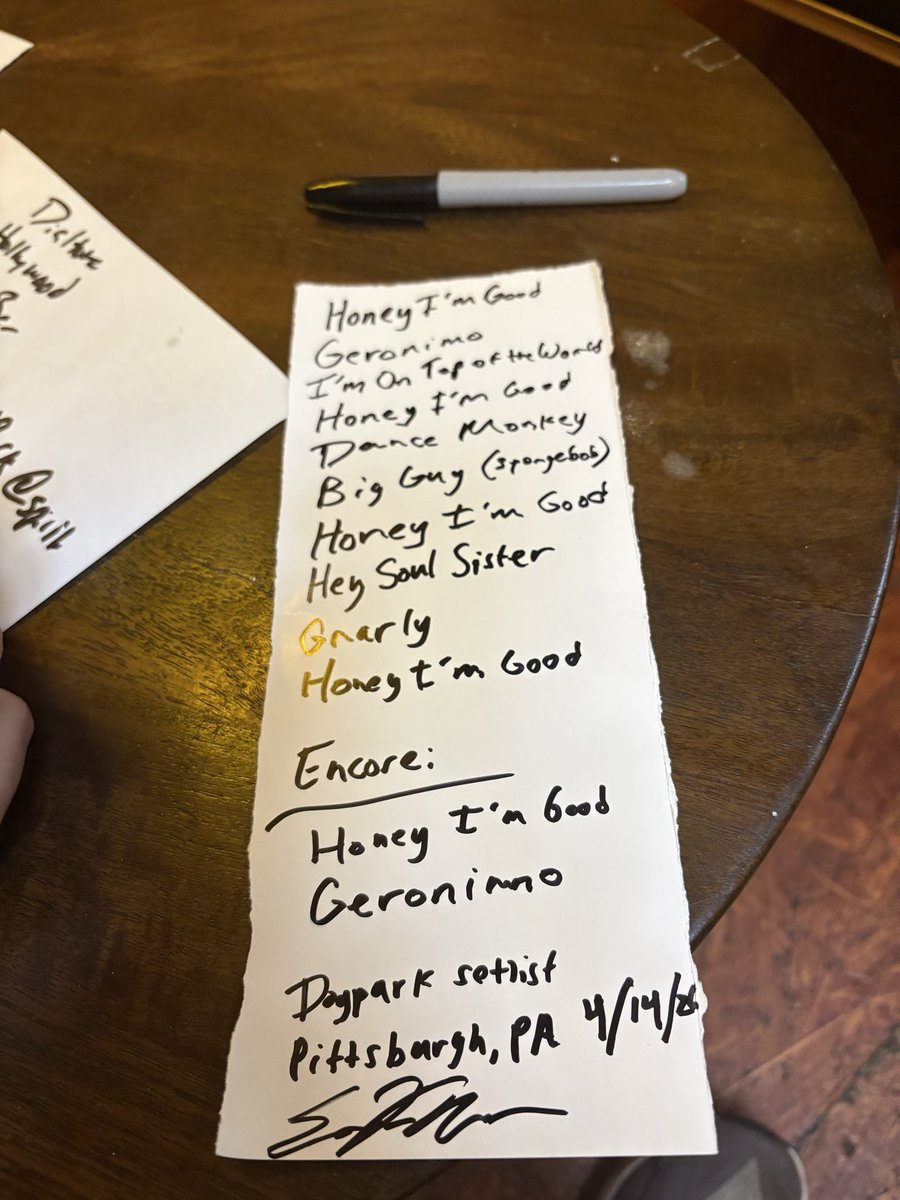 Honey I'm Good
Geronimo
I'm On Top of the World
Honey I'm Good
Dance Monkey
Big Guy (spongebob)
Honey I'm Good
Hey Soul Sister
Gnarly
Honey I'm Good
Encore:
Honey I'm Good
Geronimo
Dogpark setlist
Pittsburgh, PA 4/14/26
Hollywood